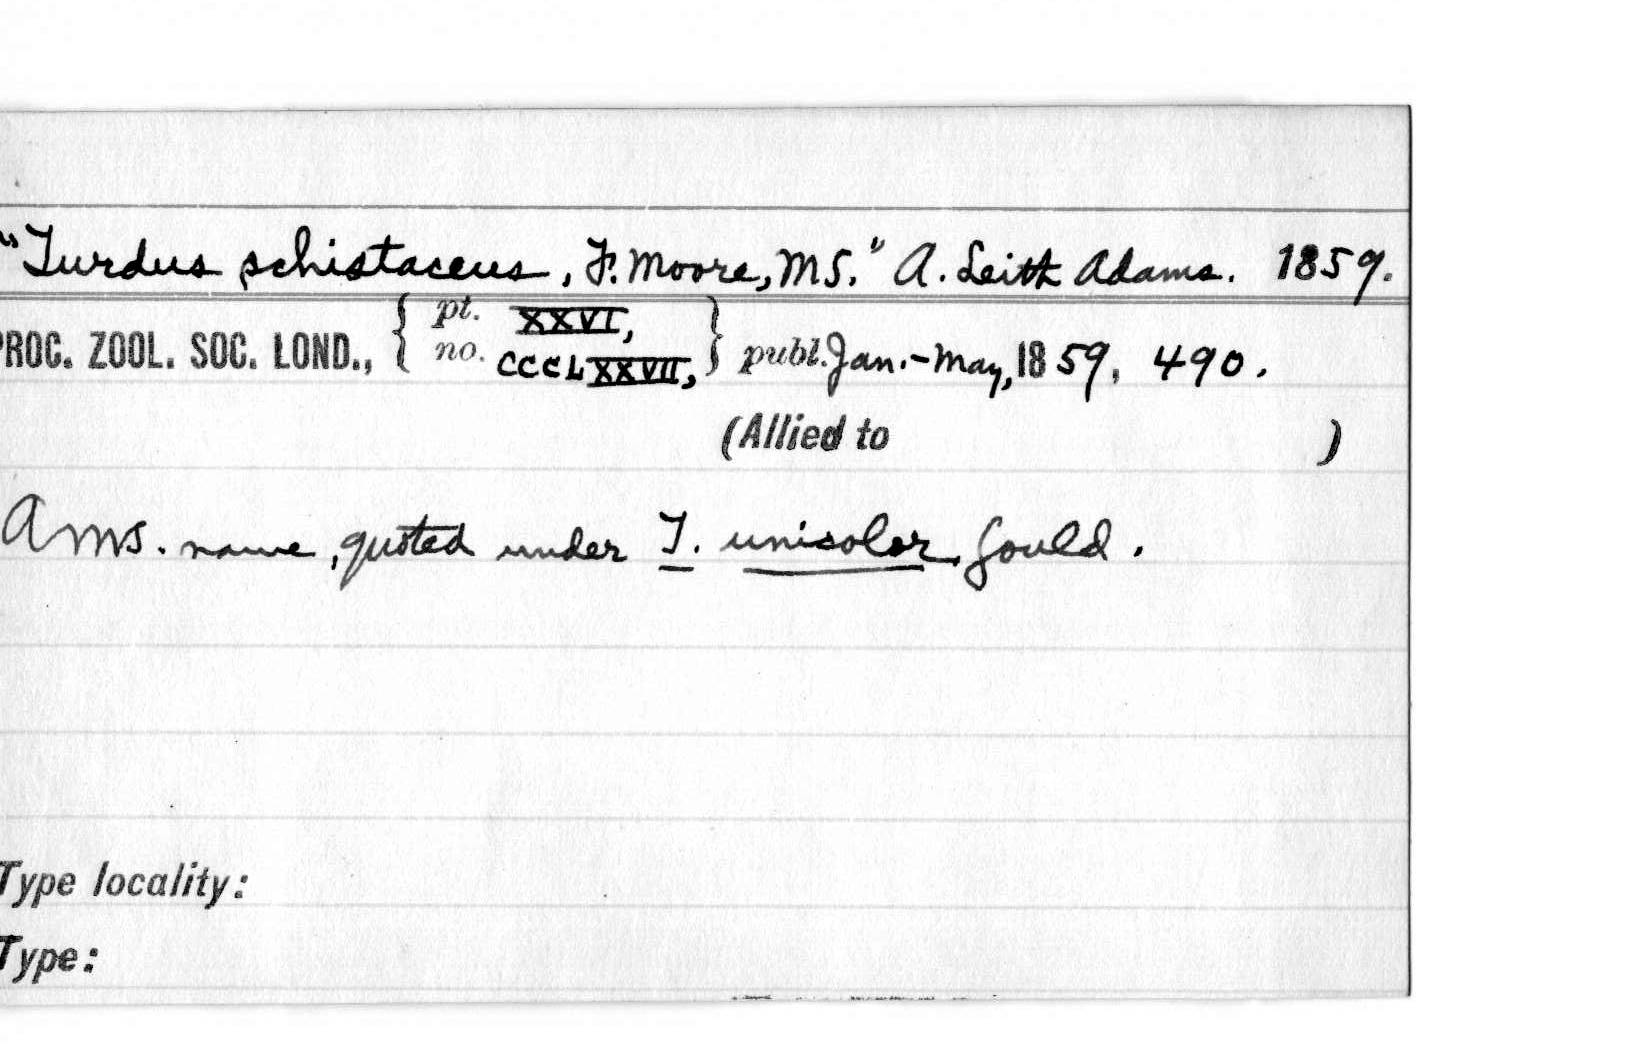 "Turdus schistaceus, F. Moore, MS." A. Leith Adams. 1859.
PROC. ZOOL. SOC. LOND., { pt. XXVI, no. CCCLXXVII, } publ. Jan.-May, 1859, 490.
(Allied to )
A ms. name, quoted under T. unicolor Gould.
Type locality:
Type: